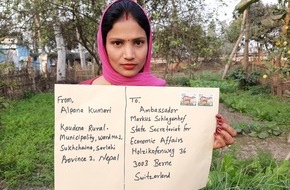 From,
Alpana Kumari
Koudena Rural-
Municipality, Ward no. 2
Sukhchaina, Sarlahi
Province 2, Nepal
To,
Ambassador
Markus Schlagenhof
State Secretariat for
Economic Affairs
Holzikofenweg 36
3003 Berne
Switzerland